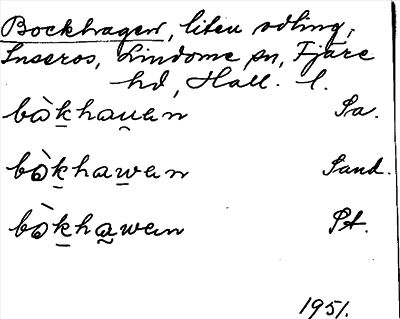 Bockhagen, liten odling,
Inseros, Lindome sn, Fjäre
hd, Hall. l.
bò̱khau̯an Sa.
bò̱khawan Sand.
bò̱khawan St.
1951.